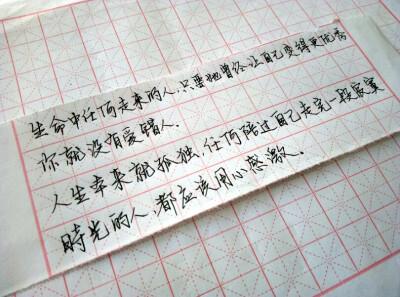 生命中任何走来的人,只要他曾经让自己变得更优秀
你就没有爱错人.
人生幸来就孤独,任何陪过自己走完一段寂寞
時光的人,都应该用心感激.